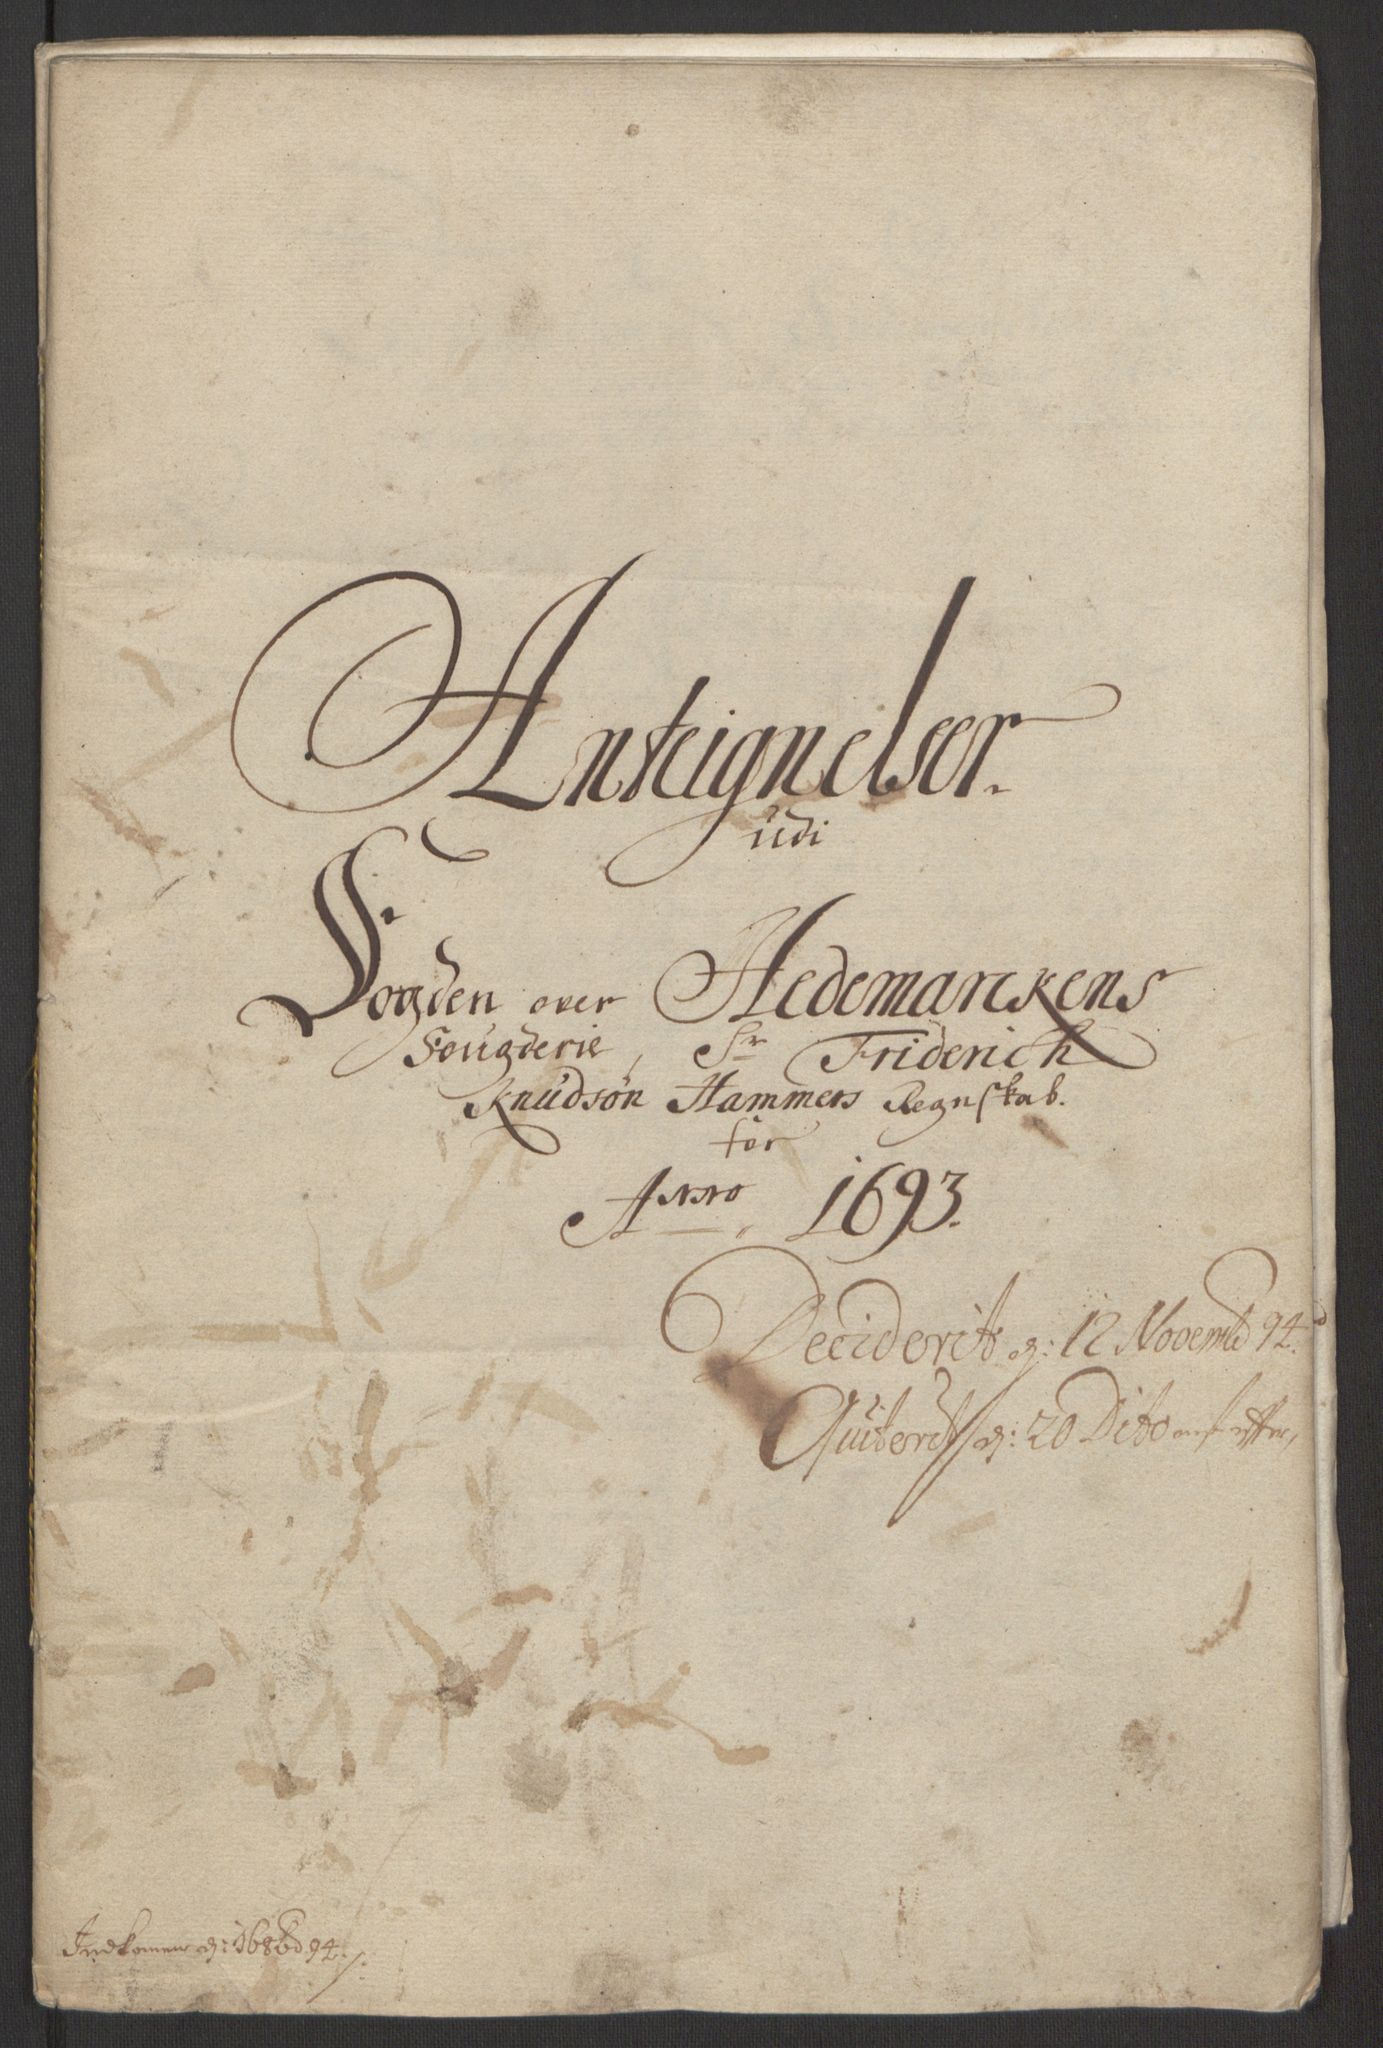 Anteignelser
udi
Fogden over Hedemarckens
Fougderie, Sr Friderich
Knudsøn Hammers Regnskab.
for
Anno 1693.
Deciderit d: 12 Novemb 94.
Quiterit d: 20 Dito
Indkomen d: 94